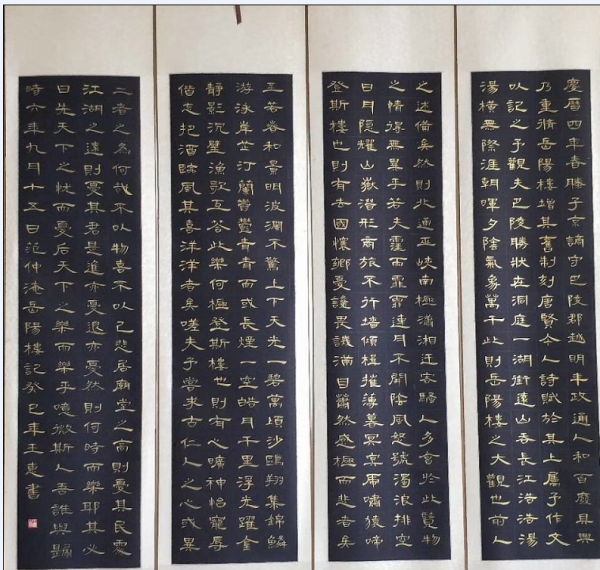 慶曆四年春滕子京謫守巴陵郡越明年政通人和百廢具興
乃重脩岳陽樓增其舊制刻唐賢今人詩賦於其上屬予作文
以記之予觀夫巴陵勝狀在洞庭一湖銜遠山吞長江浩浩湯
湯橫無際涯朝暉夕陰氣象萬千此則岳陽樓之大觀也前人
之述備矣然則北通巫峽南極瀟湘遷客騷人多會於此覽物
之情得無異乎若夫霪雨霏霏連月不開陰風怒號濁浪排空
日月隱耀山嶽潛形商旅不行檣傾楫摧薄暮冥冥虎嘯猿啼
登斯樓也則有去國懷鄉憂讒畏譏滿目蕭然感極而悲者矣
至若春和景明波瀾不驚上下天光一碧萬頃沙鷗翔集錦鱗
游泳岸芷汀蘭鬱鬱青青而或長煙一空皓月千里浮光躍金
靜影沉璧漁歌互答此樂何極登斯樓也則有心曠神怡寵辱
偕忘把酒臨風其喜洋洋者矣嗟夫予嘗求古仁人之心或異
二者之為何哉不以物喜不以己悲居廟堂之高則憂其民處
江湖之遠則憂其君是進亦憂退亦憂然則何時而樂耶其必
曰先天下之憂而憂后天下之樂而樂乎噫微斯人吾誰與歸
時六年九月十五日范仲淹岳陽樓記癸巳年王東書